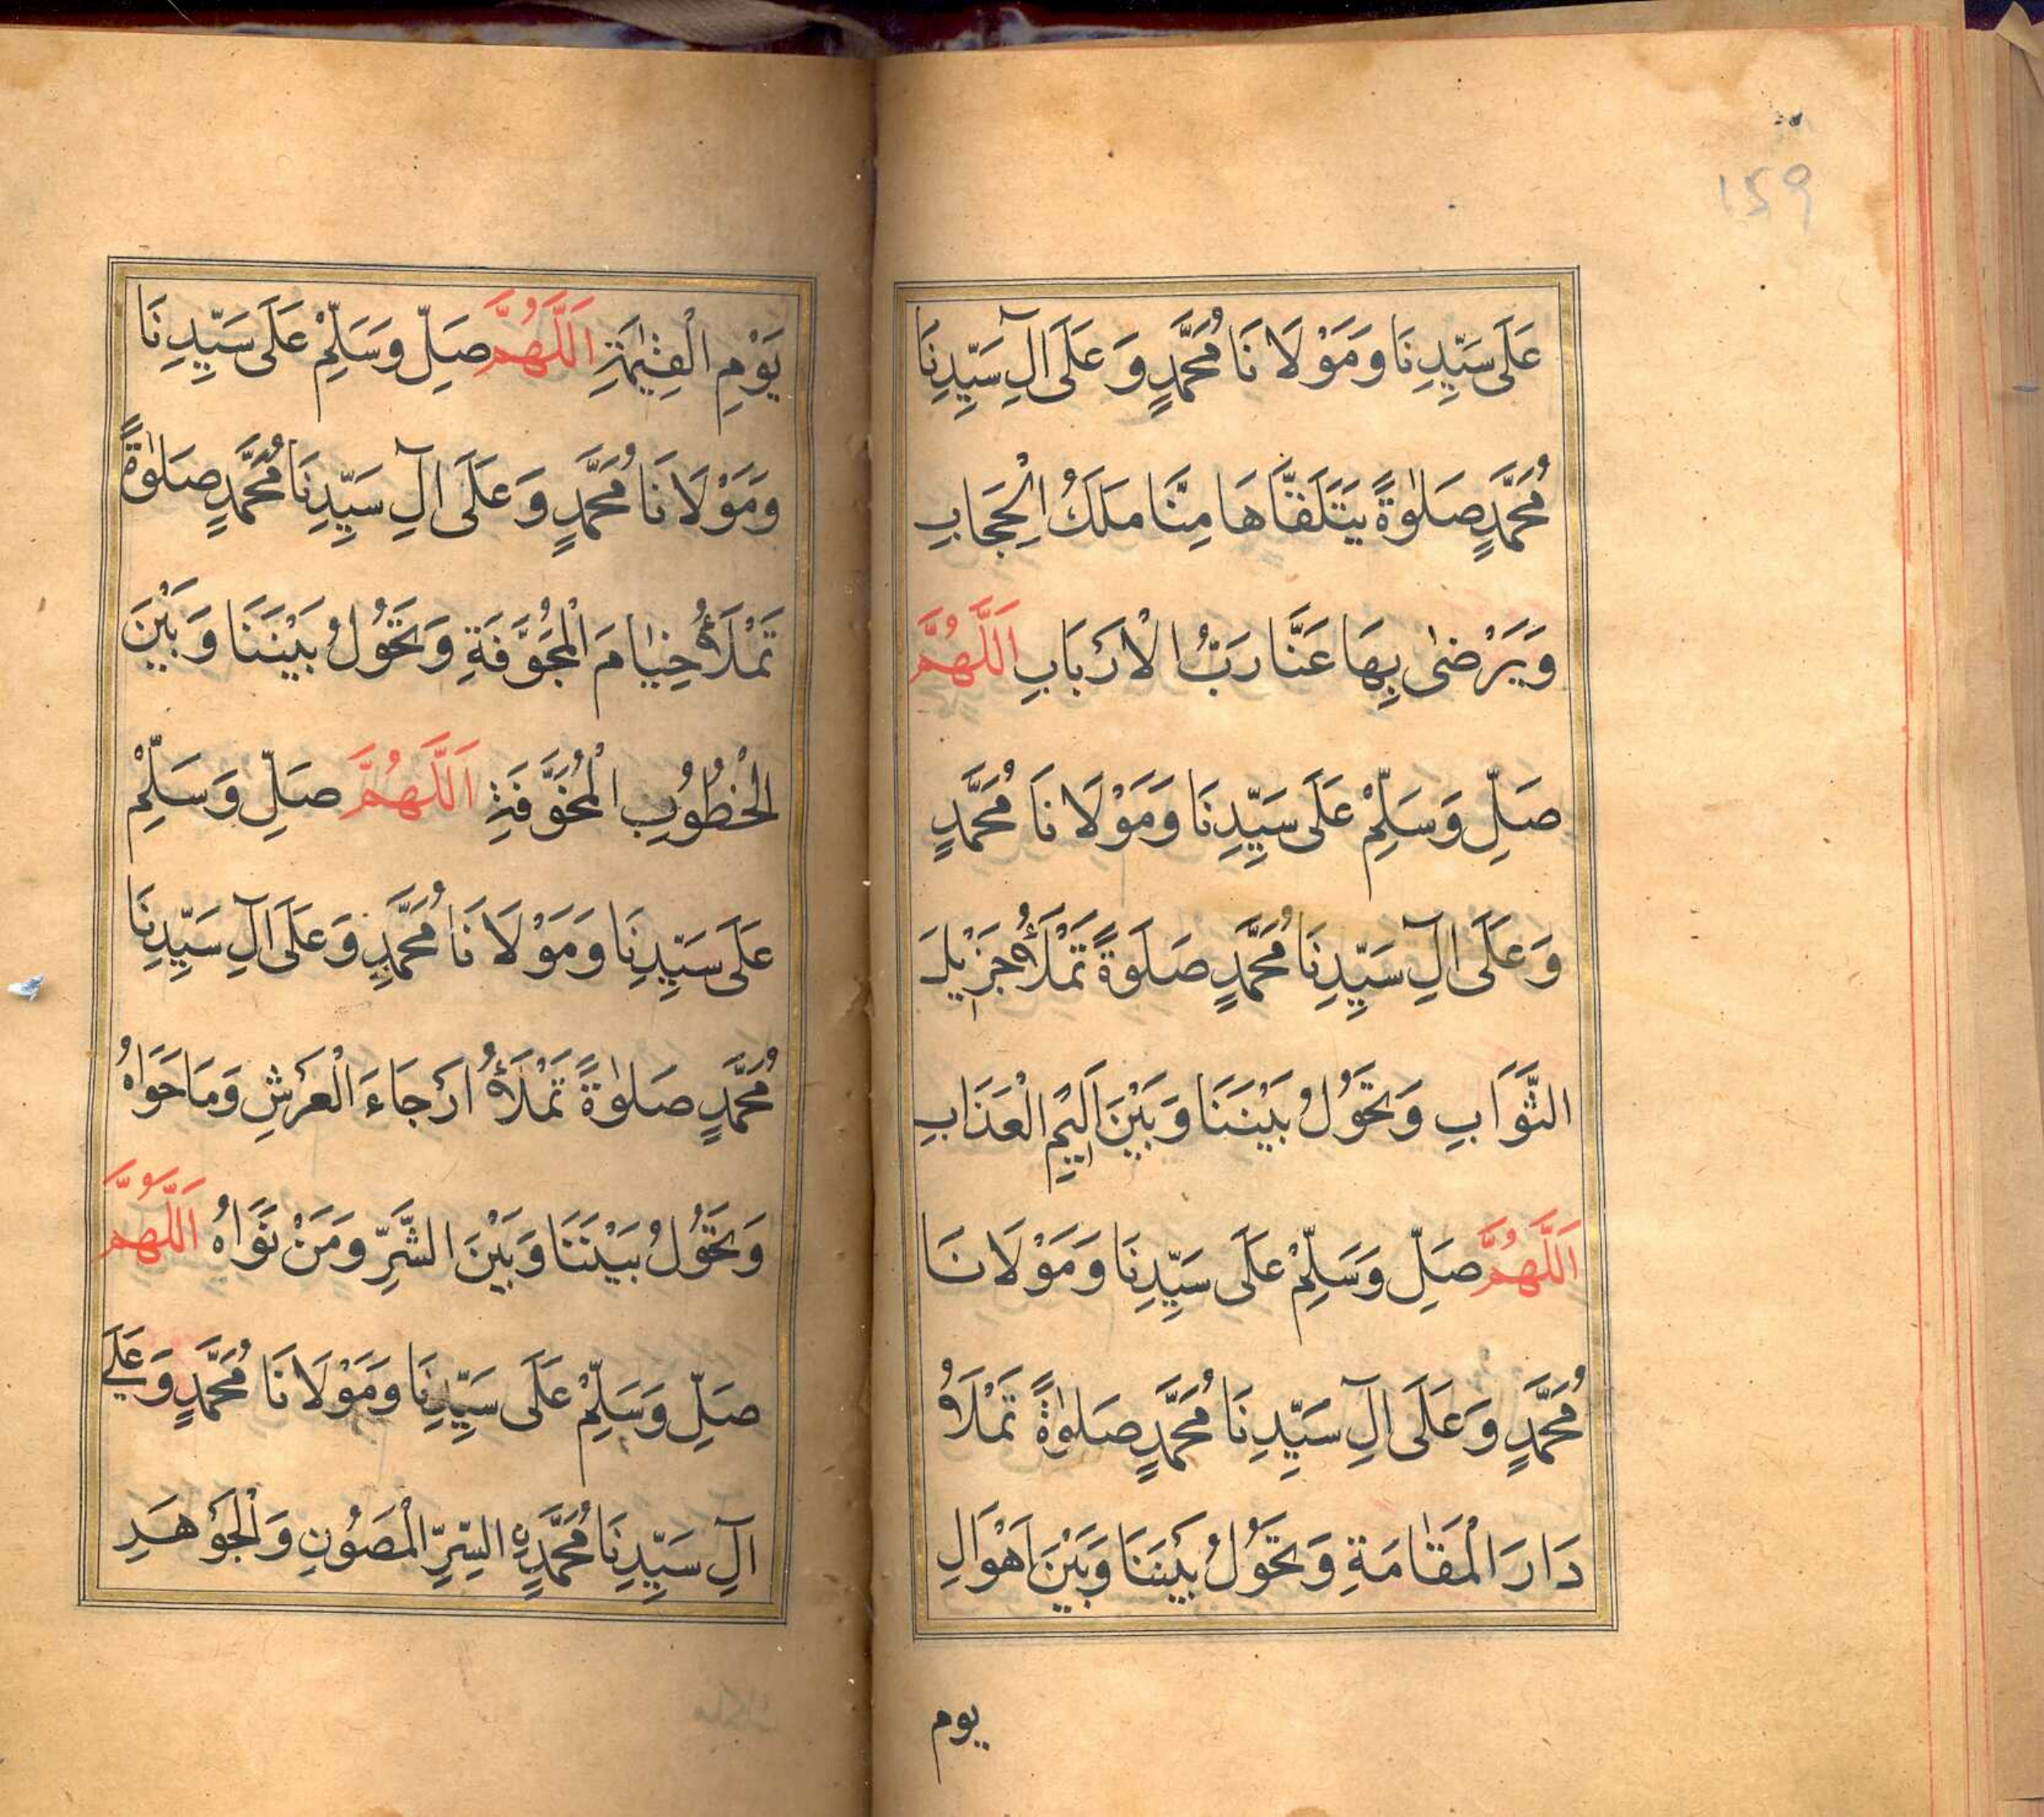 159
عَلَى سَيِّدِنَا وَمَوْلَانَا مُحَمَّدٍ وَعَلَى آلِ سَيِّدِنَا
مُحَمَّدٍ صَلٰوةً يَتَلَقَّاهَا مِنَّا مَلَكُ الْحِجَابِ
وَيَرْضٰى بِهَا عَنَّا رَبُّ الْاَرْبَابِ اَللَّهُمَّ
صَلِّ وَسَلِّمْ عَلَى سَيِّدِنَا وَمَوْلَانَا مُحَمَّدٍ
وَعَلَى آلِ سَيِّدِنَا مُحَمَّدٍ صَلَوةً تَمْلَأُ جَزِيْلَ
الثَّوَابِ وَتَحُوْلُ بَيْنَنَا وَبَيْنَ اَلِيْمِ الْعَذَابِ
اَللَّهُمَّ صَلِّ وَسَلِّمْ عَلَى سَيِّدِنَا وَمَوْلَانَا
مُحَمَّدٍ وَعَلَى آلِ سَيِّدِنَا مُحَمَّدٍ صَلٰوةً تَمْلَأُ
دَارَ الْمُقَامَةِ وَتَحُوْلُ بَيْنَنَا وَبَيْنَ اَهْوَالِ
يوم
يَوْمِ الْقِيٰمَةِ اَللَّهُمَّ صَلِّ وَسَلِّمْ عَلَى سَيِّدِنَا
وَمَوْلَانَا مُحَمَّدٍ وَعَلَى آلِ سَيِّدِنَا مُحَمَّدٍ صَلٰوةً
تَمْلَأُ خِيَامَ الْمُجَوَّفَةِ وَتَحُوْلُ بَيْنَنَا وَبَيْنَ
الْخُطُوْبِ الْمُخَوَّفَةِ اَللَّهُمَّ صَلِّ وَسَلِّمْ
عَلَى سَيِّدِنَا وَمَوْلَانَا مُحَمَّدٍ وَعَلَى آلِ سَيِّدِنَا
مُحَمَّدٍ صَلٰوةً تَمْلَأُ اَرْجَاءَ الْعَرْشِ وَمَا حَوَاهُ
وَتَحُوْلُ بَيْنَنَا وَبَيْنَ الشَّرِّ وَمَنْ نَوَاهُ اَللَّهُمَّ
صَلِّ وَسَلِّمْ عَلَى سَيِّدِنَا وَمَوْلَانَا مُحَمَّدٍ وَعَلَى
آلِ سَيِّدِنَا مُحَمَّدٍ السِّرِّ الْمَصُوْنِ وَالْجَوْهَرِ